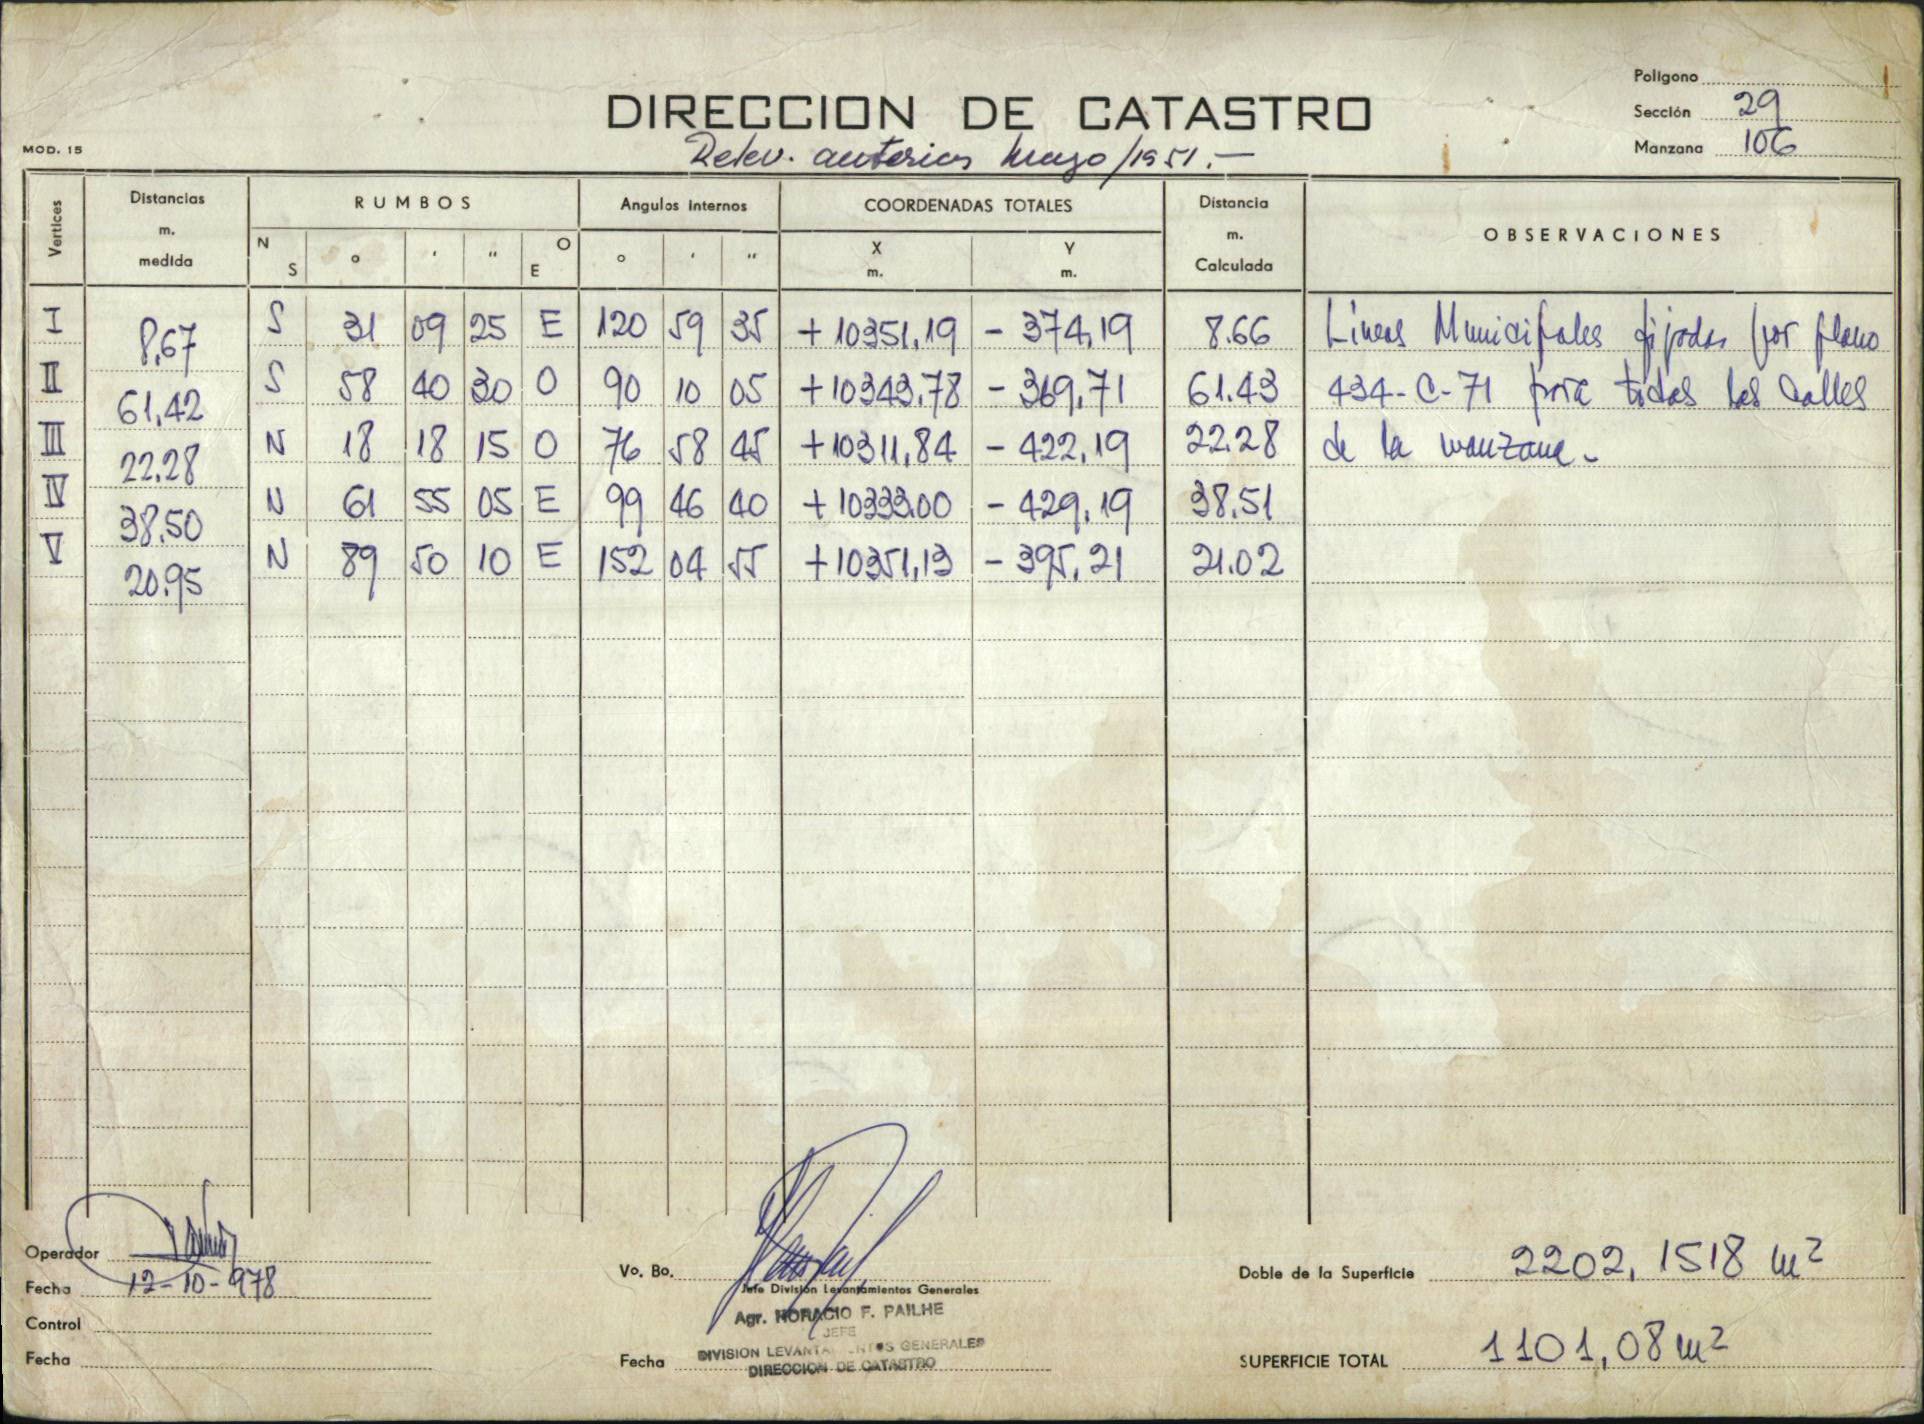 Polígono
DIRECCION DE CATASTRO
Sección 29
MOD. 15
Relev. anterior Mayo/1951.-
Manzana 106
Vertices Distancias m. medida RUMBOS Angulos internos COORDENADAS TOTALES Distancia m. Calculada OBSERVACIONES
N S ° ' " O E ° ' " X m. Y m.
I 8,67 S 31 09 25 E 120 59 35 +10351,19 - 374,19 8.66 Líneas Municipales fijadas por plano
II 61,42 S 58 40 30 O 90 10 05 +10343,78 - 369,71 61.43 434-C-71 para todas las calles
III 22,28 N 18 18 15 O 76 58 45 +10311,84 - 422,19 22.28 de la manzana.-
IV 38,50 N 61 55 05 E 99 46 40 +10333,00 - 429,19 38,51
V 20,95 N 89 50 10 E 152 04 55 +10351,13 - 395,21 21.02
Operador
Fecha 12-10-978
Control
Fecha
Vo. Bo.
Jefe División Levantamientos Generales
Agr. HORACIO F. PAILHE
JEFE
DIVISION LEVANTAMIENTOS GENERALES
Fecha DIRECCION DE CATASTRO
Doble de la Superficie 2202,1518 m²
SUPERFICIE TOTAL 1101,08 m²